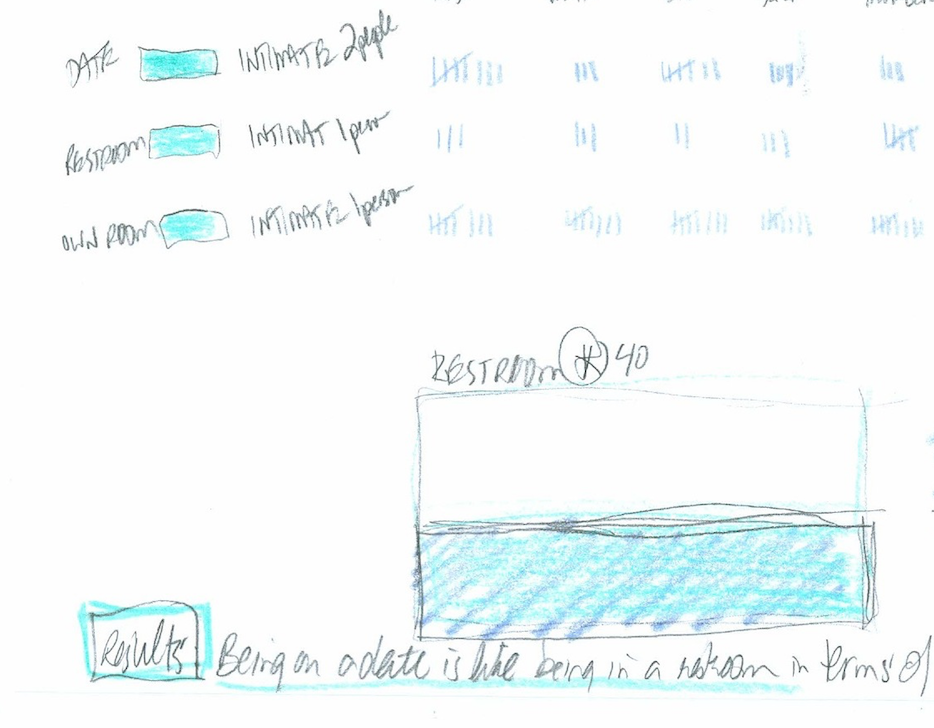 DATE INTIMATE 2 people
RESTROOM INTIMAT 1 person
OWN ROOM INTIMATE 1 person
RESTROOM 40
Results Being on a date is like being in a restroom in terms of